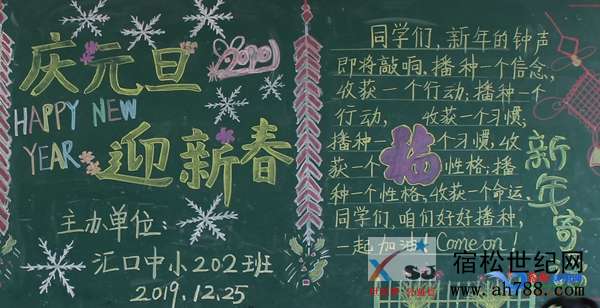 庆元旦
HAPPY NEW
YEAR
迎新春
主办单位:
汇口中小202班
2019.12.25
同学们,新年的钟声
即将敲响.播种一个信念,
收获一个行动;播种一个
行动, 收获一个习惯;
播种一个习惯,收
获一个性格;播
种一个性格,收获一个命运.
同学们,咱们好好播种,
一起加油!Come on!
福
新年寄
宿松世纪网
www.ah788.com